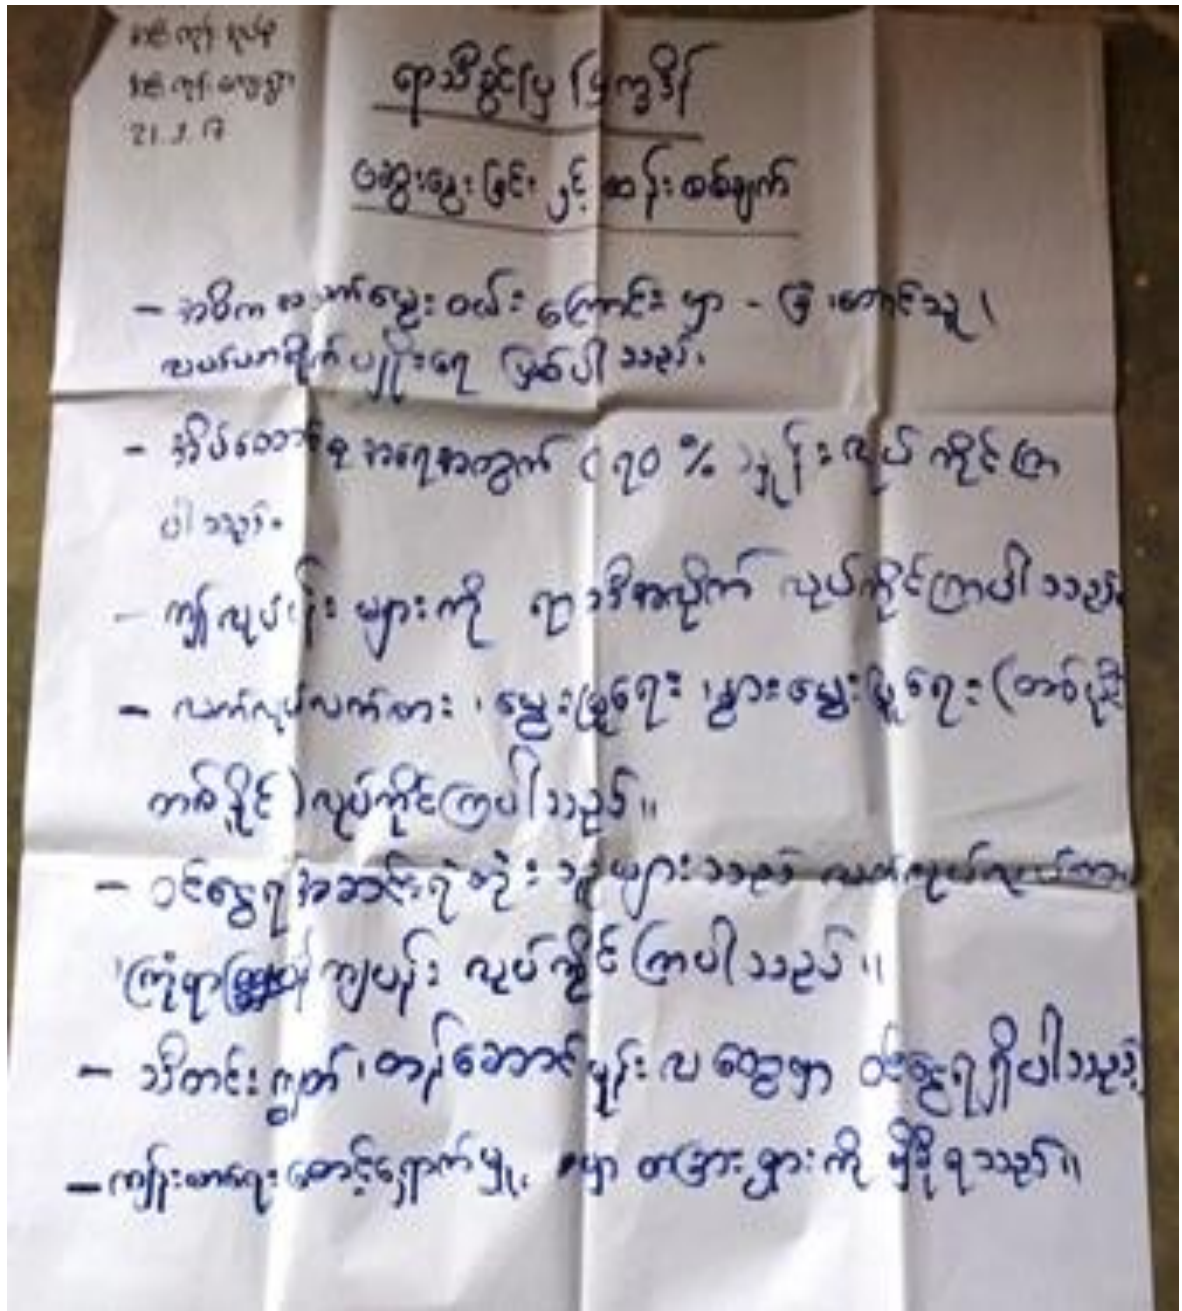 21.2.17
ရာသီခွင်ပြ ပြက္ခဒိန်
ဆွေးနွေးခြင်း နှင့် ဆန်းစစ်ချက်
- အဓိက အသက်မွေးဝမ်းကြောင်းမှာ - ခြံ၊ တောင်သူ၊
လယ်ယာစိုက်ပျိုးရေး ဖြစ်ပါသည်။
- အိမ်ထောင်စု အရေအတွက် (၇၀ %) နှုန်းလုပ်ကိုင်ကြ
ပါသည်။
- ကျွန်လုပ်ငန်းများကို ရာသီအလိုက် လုပ်ကိုင်ကြပါသည်။
- လက်လုပ်လက်စား၊ မွေးမြူရေး၊ နွားမွေးမြူရေး (တစ်ပိုင်
တစ်နိုင်) လုပ်ကိုင်ကြပါသည်။
- ဝင်ငွေရ အဆင်းရဲဆုံး သူများသည်
ကျပန်း လုပ်ကိုင်ကြပါသည်။
- သီတင်းကျွတ်၊ တန်ဆောင်မုန်းလတွေမှာ ဝင်ငွေရရှိပါသည်။
- ကျန်းမာရေး စောင့်ရှောက်မှု မှာ ကို မှီခိုရသည်။